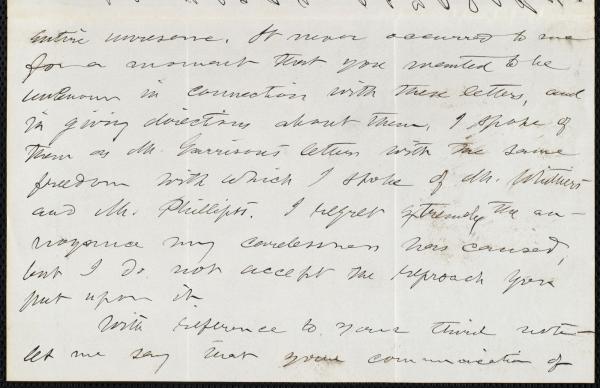 entire unreserve. It never occurred to me
for a moment that you wanted to be
unknown in connection with these letters, and
in giving directions about them, I spoke of
them as Mr. Garrison's letters with the same
freedom with which I spoke of Mr. Whittier's
and Mr. Phillips's. I regret extremely the an-
noyance my carelessness has caused,
but I do not accept the reproach you
put upon it.
With reference to your third note
let me say that your communication of